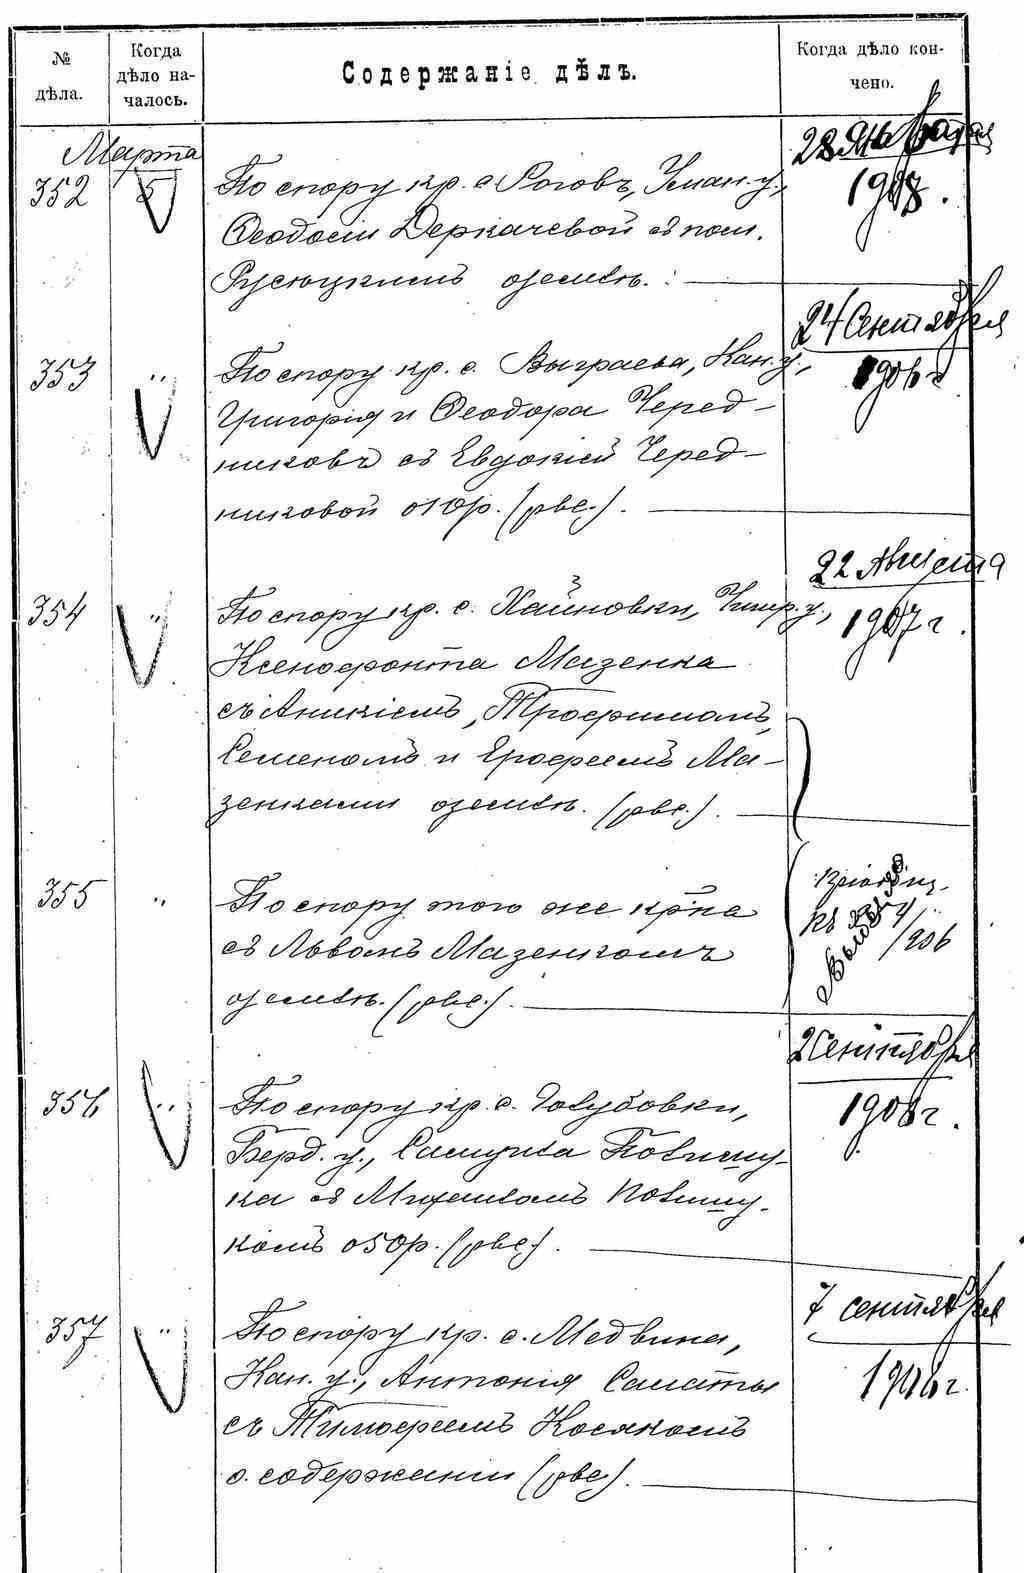 № дѣла.
Когда дѣло на-
чалось.
Содержаніе дѣлъ.
Когда дѣло кон-
чено.
Марта
352
5
По спору кр. с. Роговъ, Уман. у.,
Феодосіи Деркачевой съ пом.
о землѣ.
28 Января
1908.
353
"
По спору кр. с. Выграева, Кан. у.,
Григорія и Феодора Черед-
никовъ съ Евдокіей Черед-
никовой о 10 р. (рвс.).
24 Сентября
1906 г
354
"
По спору кр. с. Хайновки, Чигир. у.,
Ксенофонта Мазенка
съ Аникіемъ, Трофимомъ,
Семеномъ и Ерофеемъ Ма-
зенками о землѣ. (рвс.).
22 Августа
1907 г.
355
"
По спору того же кр-на
съ Львомъ Мазенкомъ
о землѣ. (рвс.).
къ 354/906
356
"
По спору кр. с. Голубовки,
Берд. у., Самуила Полищу-
ка съ Михаиломъ Полищу-
комъ о 50 р. (рвс.).
2 Сентября
1908 г.
357
"
По спору кр. с. Медвина,
Кан. у., Антонія Саматы
съ Тимофеемъ Косякомъ
о содержаніи (рвс.).
7 сентября
1906 г.